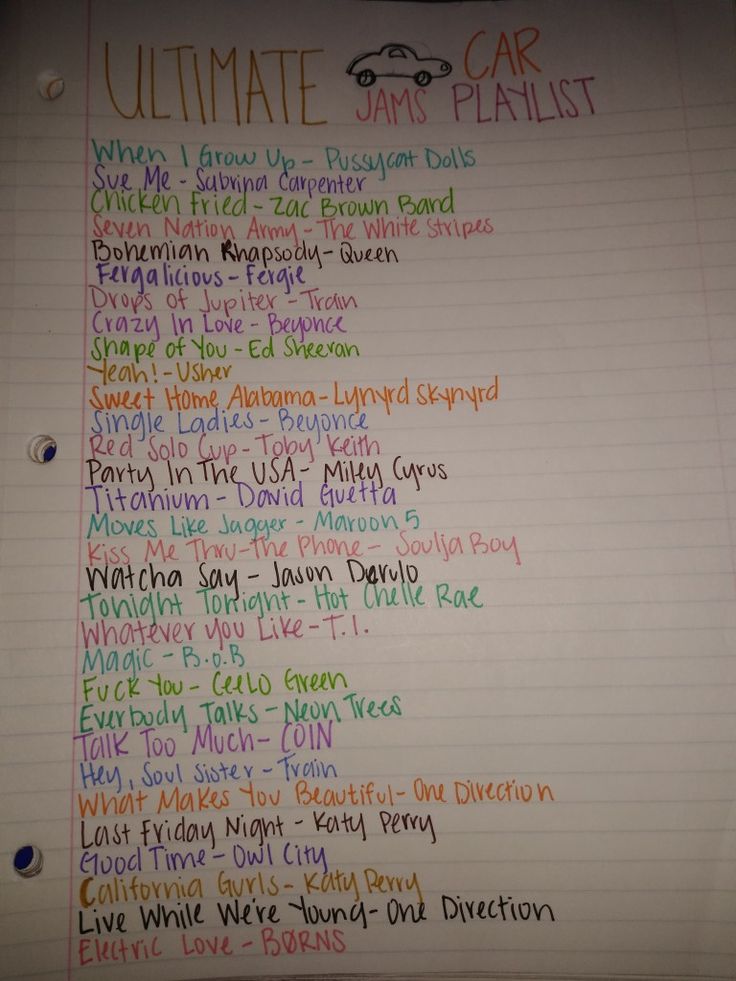 ULTIMATE CAR
JAMS PLAYLIST
When I Grow Up - Pussycat Dolls
Sue Me - Sabrina Carpenter
Chicken Fried - Zac Brown Band
Seven Nation Army - The White Stripes
Bohemian Rhapsody - Queen
Fergalicious - Fergie
Drops of Jupiter - Train
Crazy In Love - Beyonce
Shape of You - Ed Sheeran
Yeah! - Usher
Sweet Home Alabama - Lynyrd Skynyrd
Single Ladies - Beyonce
Red Solo Cup - Toby Keith
Party In The USA - Miley Cyrus
Titanium - David Guetta
Moves Like Jagger - Maroon 5
Kiss Me Thru-The Phone - Soulja Boy
Watcha Say - Jason Derulo
Tonight Tonight - Hot Chelle Rae
Whatever You Like - T.I.
Magic - B.o.B
Fuck You - CeeLo Green
Everbody Talks - Neon Trees
Talk Too Much - COIN
Hey, Soul Sister - Train
What Makes You Beautiful - One Direction
Last Friday Night - Katy Perry
Good Time - Owl City
California Gurls - Katy Perry
Live While We're Young - One Direction
Electric Love - BØRNS